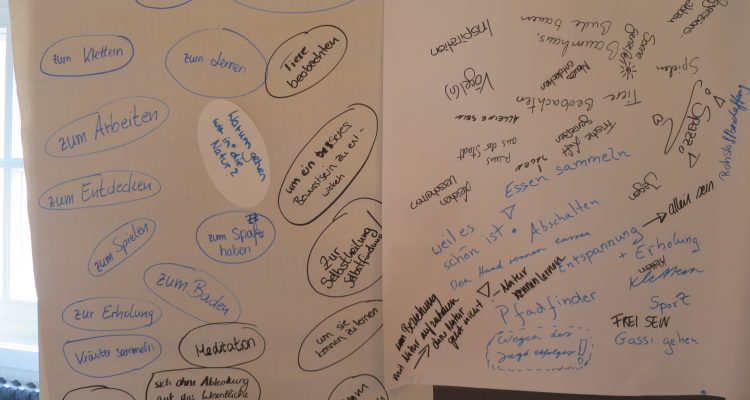 zum Klettern
zum Lernen
Tiere
beobachten
zum Arbeiten
Warum gehen
wir in die
Natur?
um ein besseres
Bewusstsein zu ent-
wickeln
zum Entdecken
zum Spielen
zum Spaß
haben
Zur
Selbstheilung/
Selbstfindung
zum Baden
zur Erholung
um sie
kennen zu lernen
Kräuter sammeln
Meditation
sich ohne Ablenkung
auf das Wesentliche
Inspiration
Baumhaus,
Bude bauen
Sonne
genießen
Neues
entdecken
Spielen
Vögel(n)
Tiere Beobachten
ALLEINE SEIN
Frische Luft
Raus
aus der Stadt
Spazzo
Rohstoffbeschaffung
Essen sammeln
Jagen
weil es
schön ist
Abschalten
→ allein sein
Den Hund rennen lassen
Entspannung
+ Erholung
Klettern
Natur
kennenlernen
um Beziehung
mit Natur aufzubauen
→ ohne Natur
geht nicht!
Pfadfinder
Sport
FREI SEIN
Gassi gehen
Wegen des
Jagderfolges!